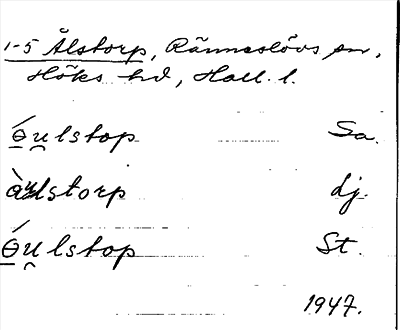 1-5 Ålstorp, Ränneslövs sn,
Höks hd, Hall. l.
ó̲u̯lstop Sa.
àu̯lstorp Lj.
ó̲u̯lstop St.
1947.